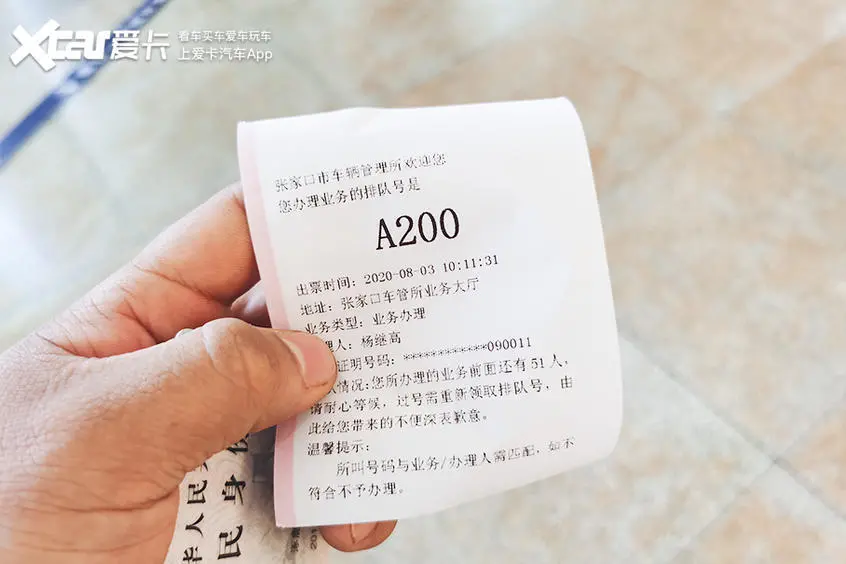 Xcar爱卡
看车买车爱车玩车
上爱卡汽车App
张家口市车辆管理所欢迎您
您办理业务的排队号是
A200
出票时间：2020-08-03 10:11:31
地址：张家口车管所业务大厅
业务类型：业务办理
理人：杨继高
证明号码：************090011
情况：您所办理的业务前面还有51人，
请耐心等候，过号需重新领取排队号，由
此给您带来的不便深表歉意。
温馨提示：
所叫号码与业务/办理人需匹配，如不
符合不予办理。
人民
民身